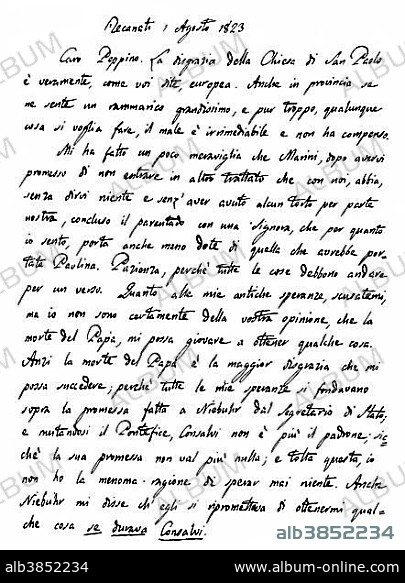 Recanati 1 Agosto 1823
Caro Peppino. La disgrazia della Chiesa di San Paolo
è veramente, come voi dite, europea. Anche in provincia se
ne sente un rammarico grandissimo, e pur troppo, qualunque
cosa si voglia fare, il male è irrimediabile e non ha compenso.
Mi ha fatto un poco meraviglia che Marini, dopo avervi
promesso di non entrare in altro trattato che con noi, abbia,
senza dirvi niente e senz' aver avuto alcun torto per parte
nostra, concluso il parentado con una Signora, che per quanto
io sento, porta anche meno dote di quella che avrebbe por-
tata Paolina. Pazienza, perchè tutte le cose debbono andare
per un verso. Quanto alle mie antiche speranze, scusatemi,
ma io non sono certamente della vostra opinione, che la
morte del Papa, mi possa giovare a ottener qualche cosa.
Anzi la morte del Papa è la maggior disgrazia che mi
possa succedere; perchè tutte le mie speranze si fondavano
sopra la promessa fatta a Niebuhr dal Segretario di Stato;
e mutandosi il Pontefice, Consalvi non è più il padrone; sic-
chè la sua promessa non val più nulla; e tolta questa, io
non ho la menoma ragione di sperar mai niente. Anche
Niebuhr mi disse ch' egli si riprometteva di ottenermi qual-
che cosa se durava Consalvi.
ALBUM
alb3852234
alb3852234
www.album-online.com